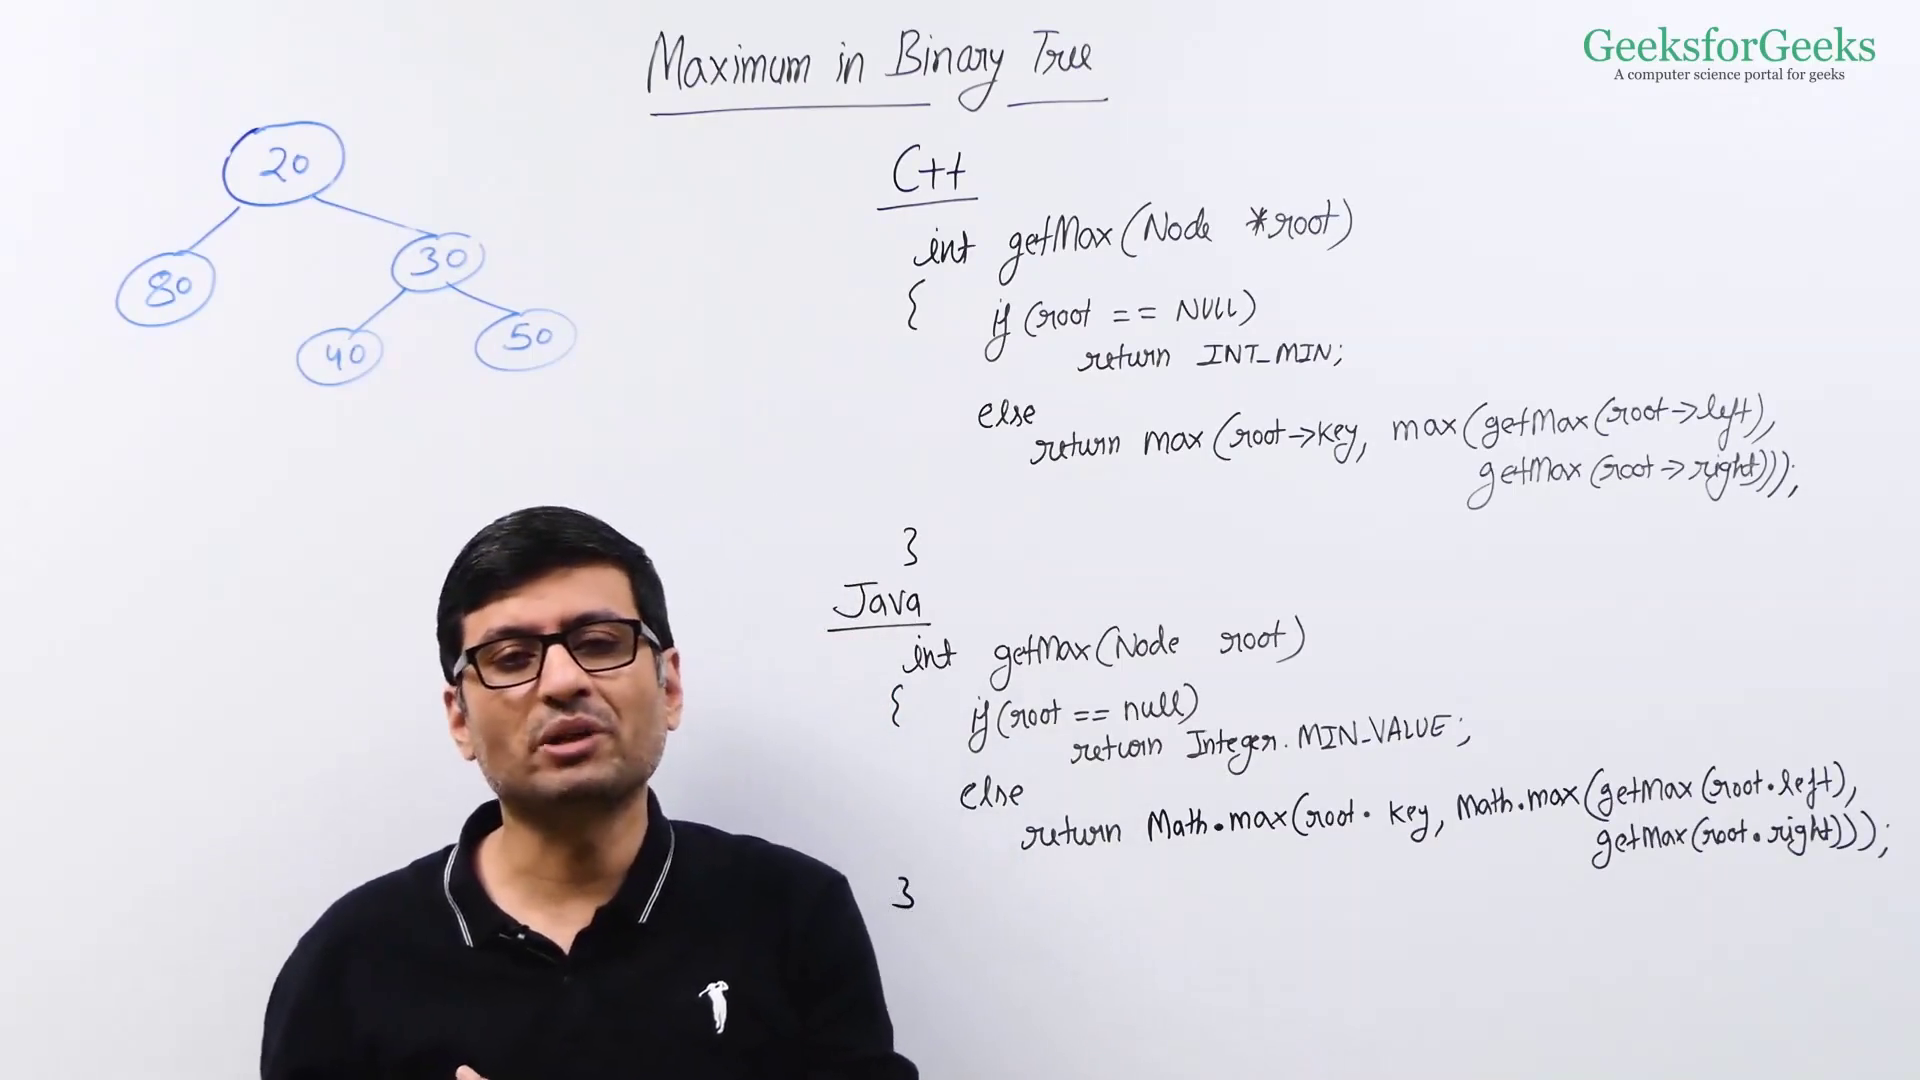 Maximum in Binary Tree
GeeksforGeeks
A computer science portal for geeks
20
80
30
40
50
C++
int getMax(Node *root)
{ if (root == NULL)
return INT_MIN;
else
return max (root->key, max(getMax(root->left),
getMax(root->right)));
}
Java
int getMax(Node root)
{ if (root == null)
return Integer.MIN_VALUE;
else
return Math.max(root.key, Math.max(getMax(root.left),
getMax(root.right)));
}